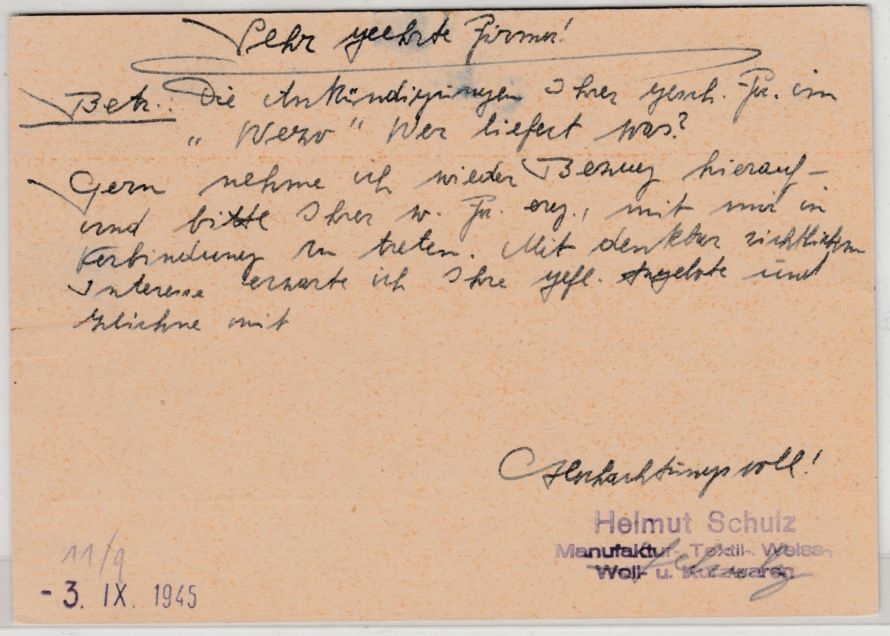 Sehr geehrte Firma!
Betr.: Die Ankündigungen Ihrer gesch. Fa. im
"Werwo" Wer liefert was?
Gern nehme ich wieder Bezug hierauf -
und bitte Ihrer w. Fa. erg., mit mir in
Verbindung zu treten. Mit denkbar
Interesse erwarte ich Ihre gefl. Angebote und
zeichne mit
Hochachtungsvoll!
Helmut Schulz
Manufaktur-, Textil-, Weiss-,
Woll- u. Kurzwaren
11/9
- 3. IX. 1945